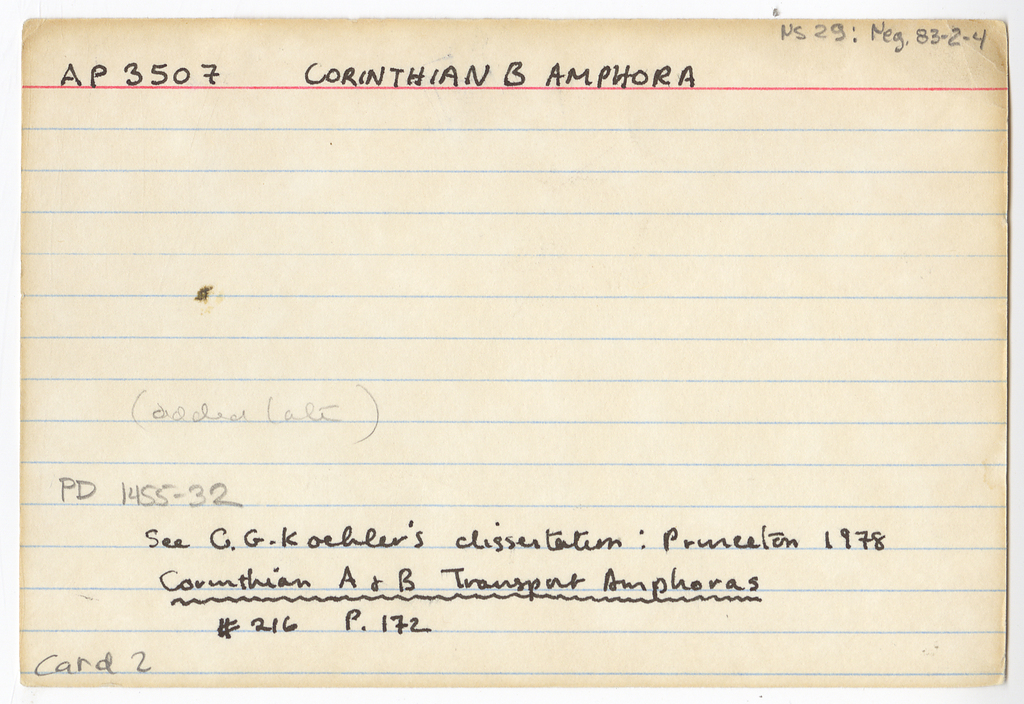 NS 29: Neg. 83-2-4
AP 3507 CORINTHIAN B AMPHORA
(added late)
PD 1455-32
See C.G. Koehler's dissertation: Princeton 1978
Corinthian A & B Transport Amphoras
# 216 P. 172
Card 2